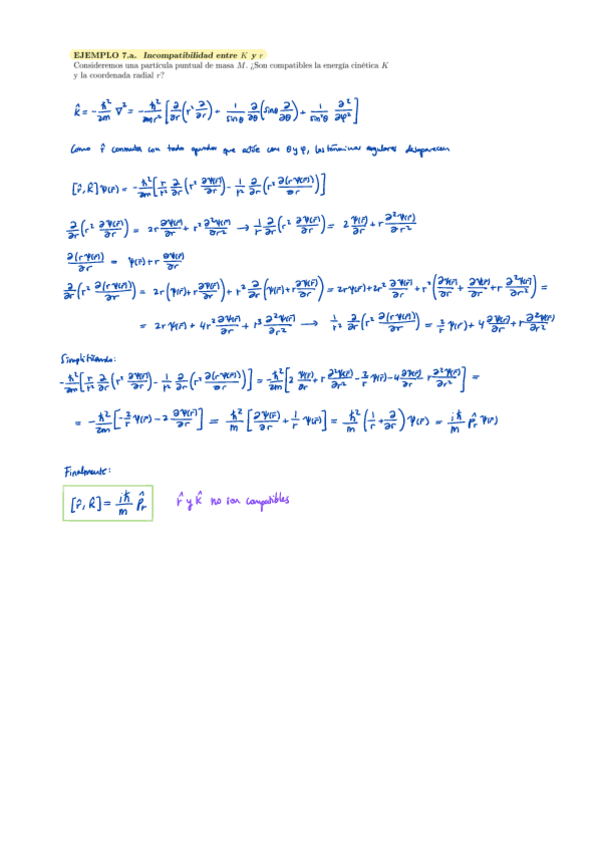 EJEMPLO 7.a. Incompatibilidad entre K y r
Consideremos una partícula puntual de masa M. ¿Son compatibles la energía cinética K
y la coordenada radial r?
K̂ = -ħ²/2m ∇² = -ħ²/2mr² [∂/∂r (r² ∂/∂r) + 1/sinθ ∂/∂θ (sinθ ∂/∂θ) + 1/sin²θ ∂²/∂φ²]
Como r̂ conmuta con todo operador que actúe sobre θ y φ, los términos angulares desaparecen
[r̂, K̂] Ψ(r̄) = -ħ²/2m [r/r² ∂/∂r (r² ∂Ψ(r̄)/∂r) - 1/r² ∂/∂r (r² ∂(rΨ(r̄))/∂r)]
∂/∂r (r² ∂Ψ(r̄)/∂r) = 2r ∂Ψ(r̄)/∂r + r² ∂²Ψ(r̄)/∂r² → 1/r ∂/∂r (r² ∂Ψ(r̄)/∂r) = 2 Ψ(r̄)/∂r + r ∂²Ψ(r̄)/∂r²
∂(rΨ(r̄))/∂r = Ψ(r̄) + r ∂Ψ(r̄)/∂r
∂/∂r (r² ∂(rΨ(r̄))/∂r) = 2r (Ψ(r̄) + r ∂Ψ(r̄)/∂r) + r² ∂/∂r (Ψ(r̄) + r ∂Ψ(r̄)/∂r) = 2rΨ(r̄) + 2r² ∂Ψ(r̄)/∂r + r² (∂Ψ(r̄)/∂r + ∂Ψ(r̄)/∂r + r ∂²Ψ(r̄)/∂r²) =
= 2rΨ(r̄) + 4r² ∂Ψ(r̄)/∂r + r³ ∂²Ψ(r̄)/∂r² → 1/r² ∂/∂r (r² ∂(rΨ(r̄))/∂r) = 2/r Ψ(r) + 4 ∂Ψ(r̄)/∂r + r ∂²Ψ(r̄)/∂r²
Simplificando:
-ħ²/2m [r/r² ∂/∂r (r² ∂Ψ(r̄)/∂r) - 1/r² ∂/∂r (r² ∂(rΨ(r̄))/∂r)] = -ħ²/2m [2 Ψ(r̄)/∂r + r ∂²Ψ(r̄)/∂r² - 2/r Ψ(r̄) - 4 ∂Ψ(r̄)/∂r - r ∂²Ψ(r̄)/∂r²] =
= -ħ²/2m [-2/r Ψ(r̄) - 2 ∂Ψ(r̄)/∂r] = ħ²/m [∂Ψ(r̄)/∂r + 1/r Ψ(r̄)] = ħ²/m (1/r + ∂/∂r) Ψ(r̄) = iħ/m p̂r Ψ(r̄)
Finalmente:
[r̂, K̂] = iħ/m p̂r r̂ y K̂ no son compatibles